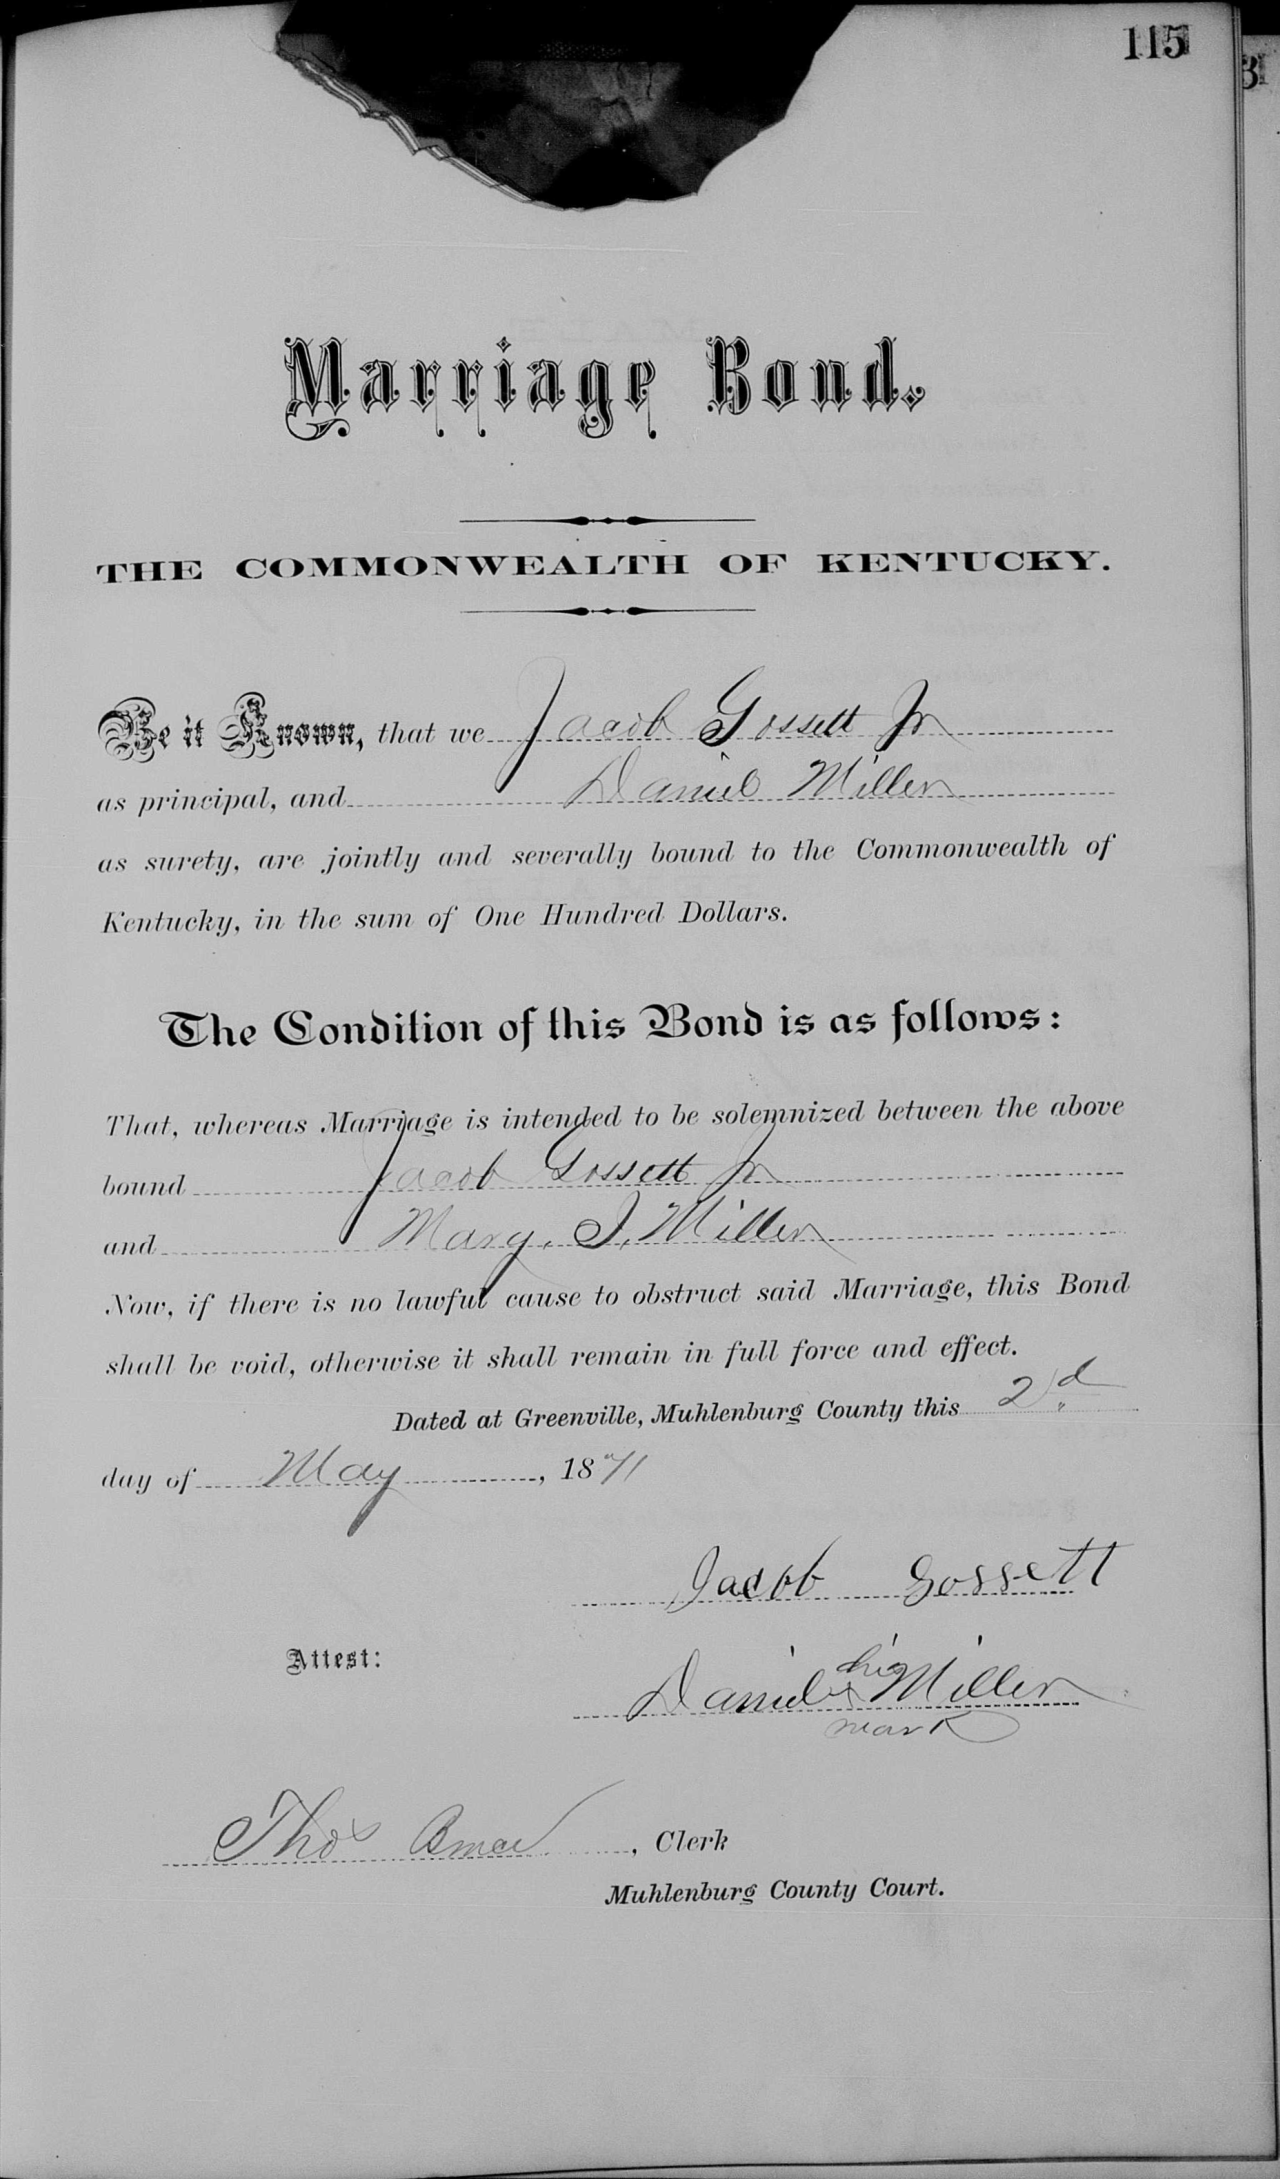 115
Marriage Bond.
THE COMMONWEALTH OF KENTUCKY.
Be it Known, that we Jacob Gossett Jr
as principal, and Daniel Miller
as surety, are jointly and severally bound to the Commonwealth of
Kentucky, in the sum of One Hundred Dollars.
The Condition of this Bond is as follows:
That, whereas Marriage is intended to be solemnized between the above
bound Jacob Gossett Jr
and Mary. J. Miller
Now, if there is no lawful cause to obstruct said Marriage, this Bond
shall be void, otherwise it shall remain in full force and effect.
Dated at Greenville, Muhlenburg County this 2d
day of May, 1871
Jacob Gossett
Attest:
his
Daniel x Miller
mark
Thos , Clerk
Muhlenburg County Court.